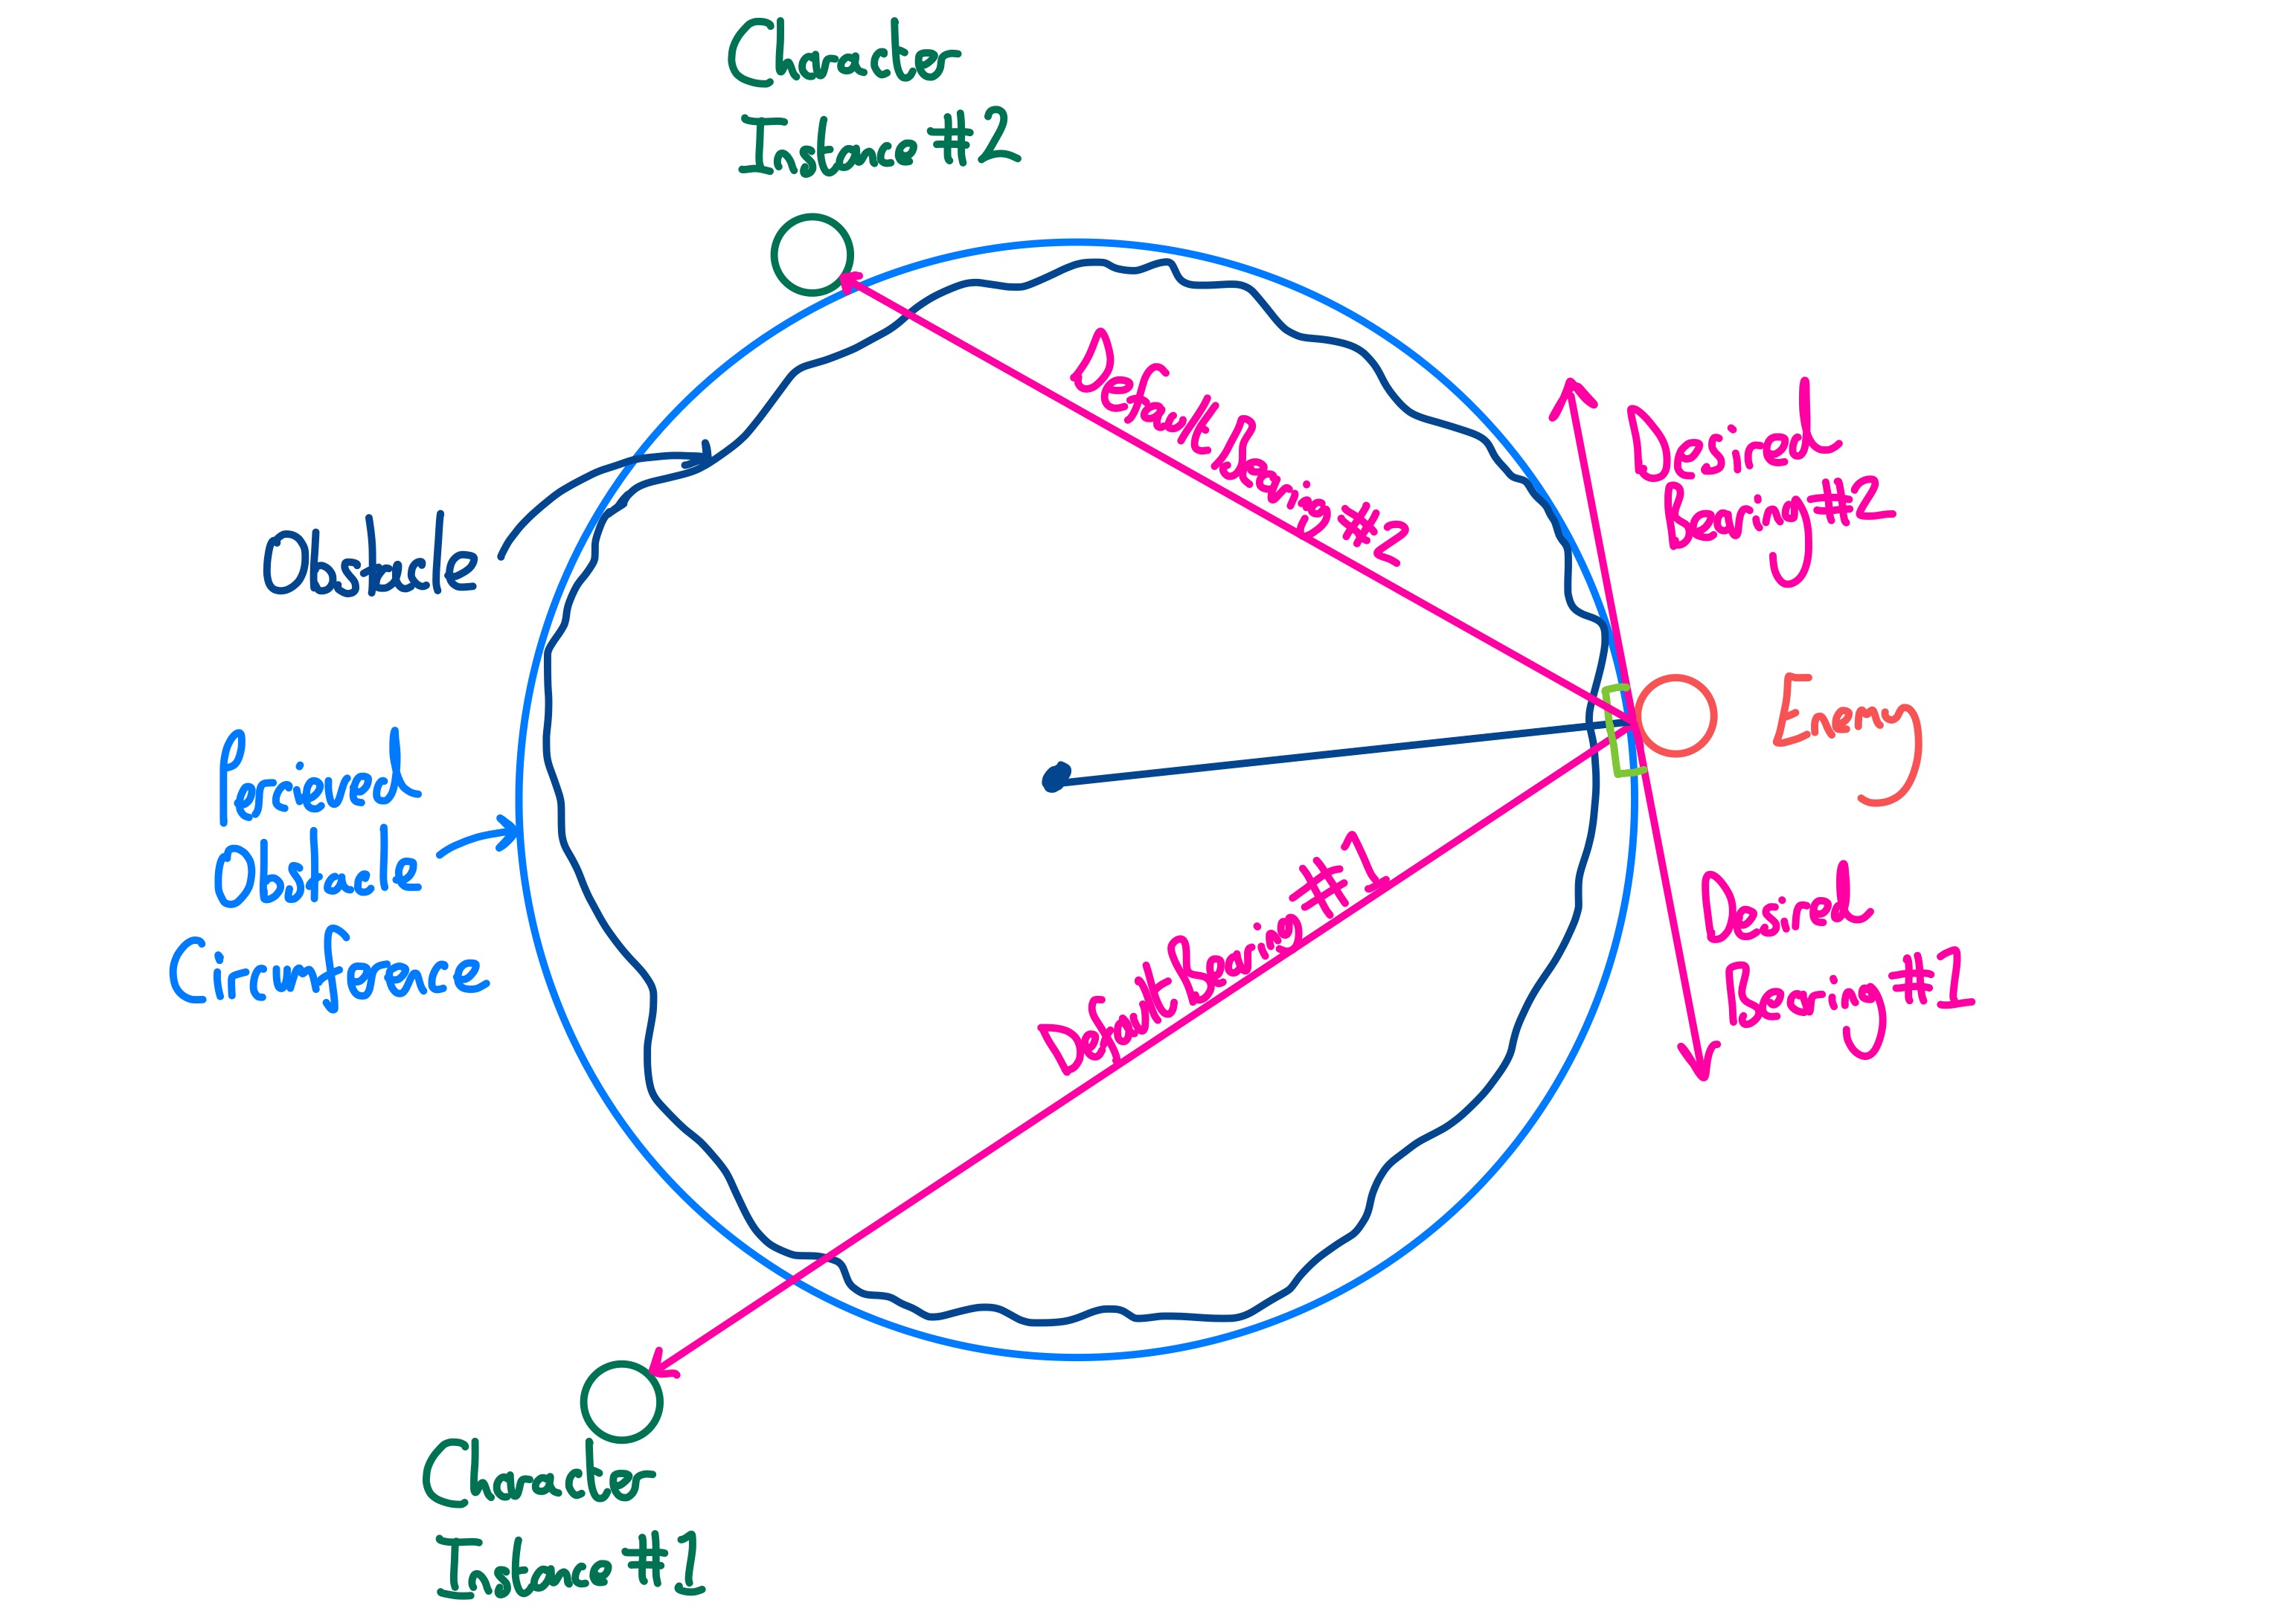 Character
Instance #2
Default Bearing #2
Desired
Bearing #2
Obstacle
Enemy
Percieved
Obstacle
Circumference
Default Bearing #1
Desired
Bearing #1
Character
Instance #1